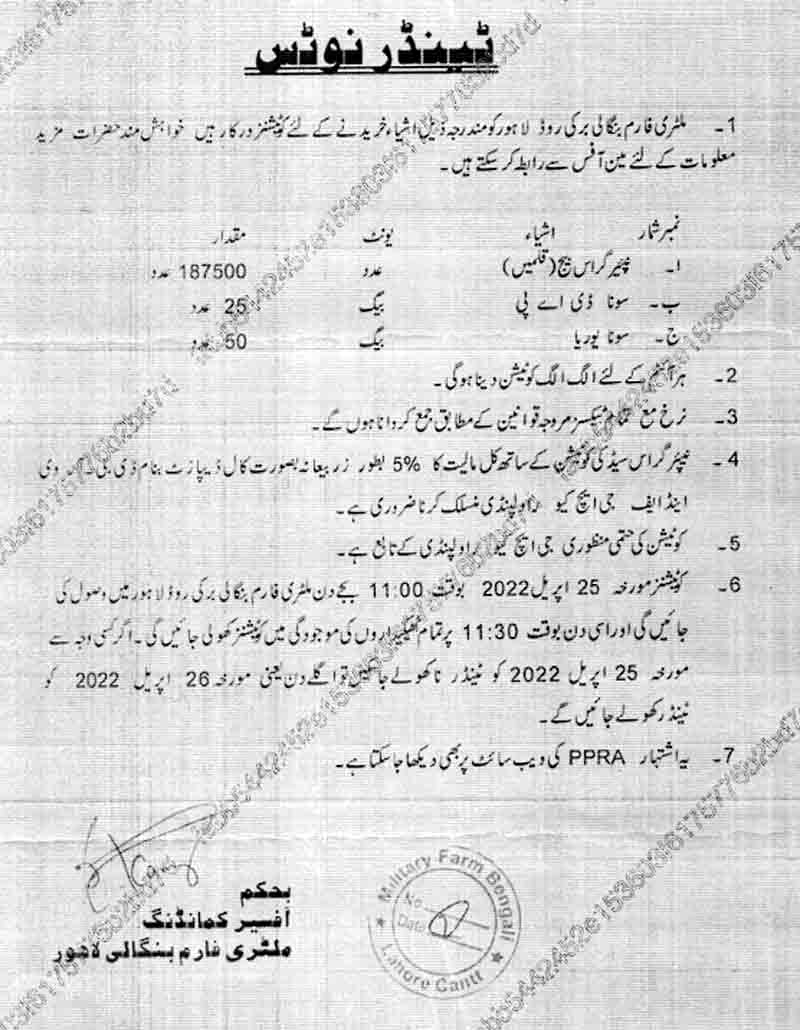 ٹینڈر نوٹس
1- ملٹری فارم بنگالی برکی روڈ لاہور کو مندرجہ ذیل اشیاء خریدنے کے لئے کوٹیشنز درکار ہیں خواہش مند حضرات مزید
معلومات کے لئے مین آفس سے رابطہ کر سکتے ہیں۔
نمبر شمار اشیاء یونٹ مقدار
ا۔ نیپئر گراس بیج (قلمیں) عدد 187500 عدد
ب۔ سونا ڈی اے پی بیگ 25 عدد
ج۔ سونا یوریا بیگ 50 عدد
2- ہر آئٹم کے لئے الگ الگ کوٹیشن دینا ہو گی۔
3- نرخ مع تمام ٹیکسز مروجہ قوانین کے مطابق جمع کروانا ہوں گے۔
4- نیپئر گراس سیڈ کی کوٹیشن کے ساتھ کل مالیت کا 5% بطور زر بیعانہ بصورت کال ڈیپازٹ بنام ڈی جی وی
اینڈ ایف جی ایچ کیو راولپنڈی منسلک کرنا ضروری ہے۔
5- کوٹیشن کی حتمی منظوری جی ایچ کیو راولپنڈی کے تابع ہے۔
6- کوٹیشنز مورخہ 25 اپریل 2022 بوقت 11:00 بجے دن ملٹری فارم بنگالی برکی روڈ لاہور میں وصول کی
جائیں گی اور اسی دن بوقت 11:30 پر تمام ٹھیکیداروں کی موجودگی میں کوٹیشنز کھولی جائیں گی۔ اگر کسی وجہ سے
مورخہ 25 اپریل 2022 کو ٹینڈر نا کھولے جا سکیں تو اگلے دن یعنی مورخہ 26 اپریل 2022 کو
ٹینڈر کھولے جائیں گے۔
7- یہ اشتہار PPRA کی ویب سائٹ پر بھی دیکھا جا سکتا ہے۔
بحکم
آفیسر کمانڈنگ
ملٹری فارم بنگالی لاہور
Military Farm Bengali
No
Date
Lahore Cantt